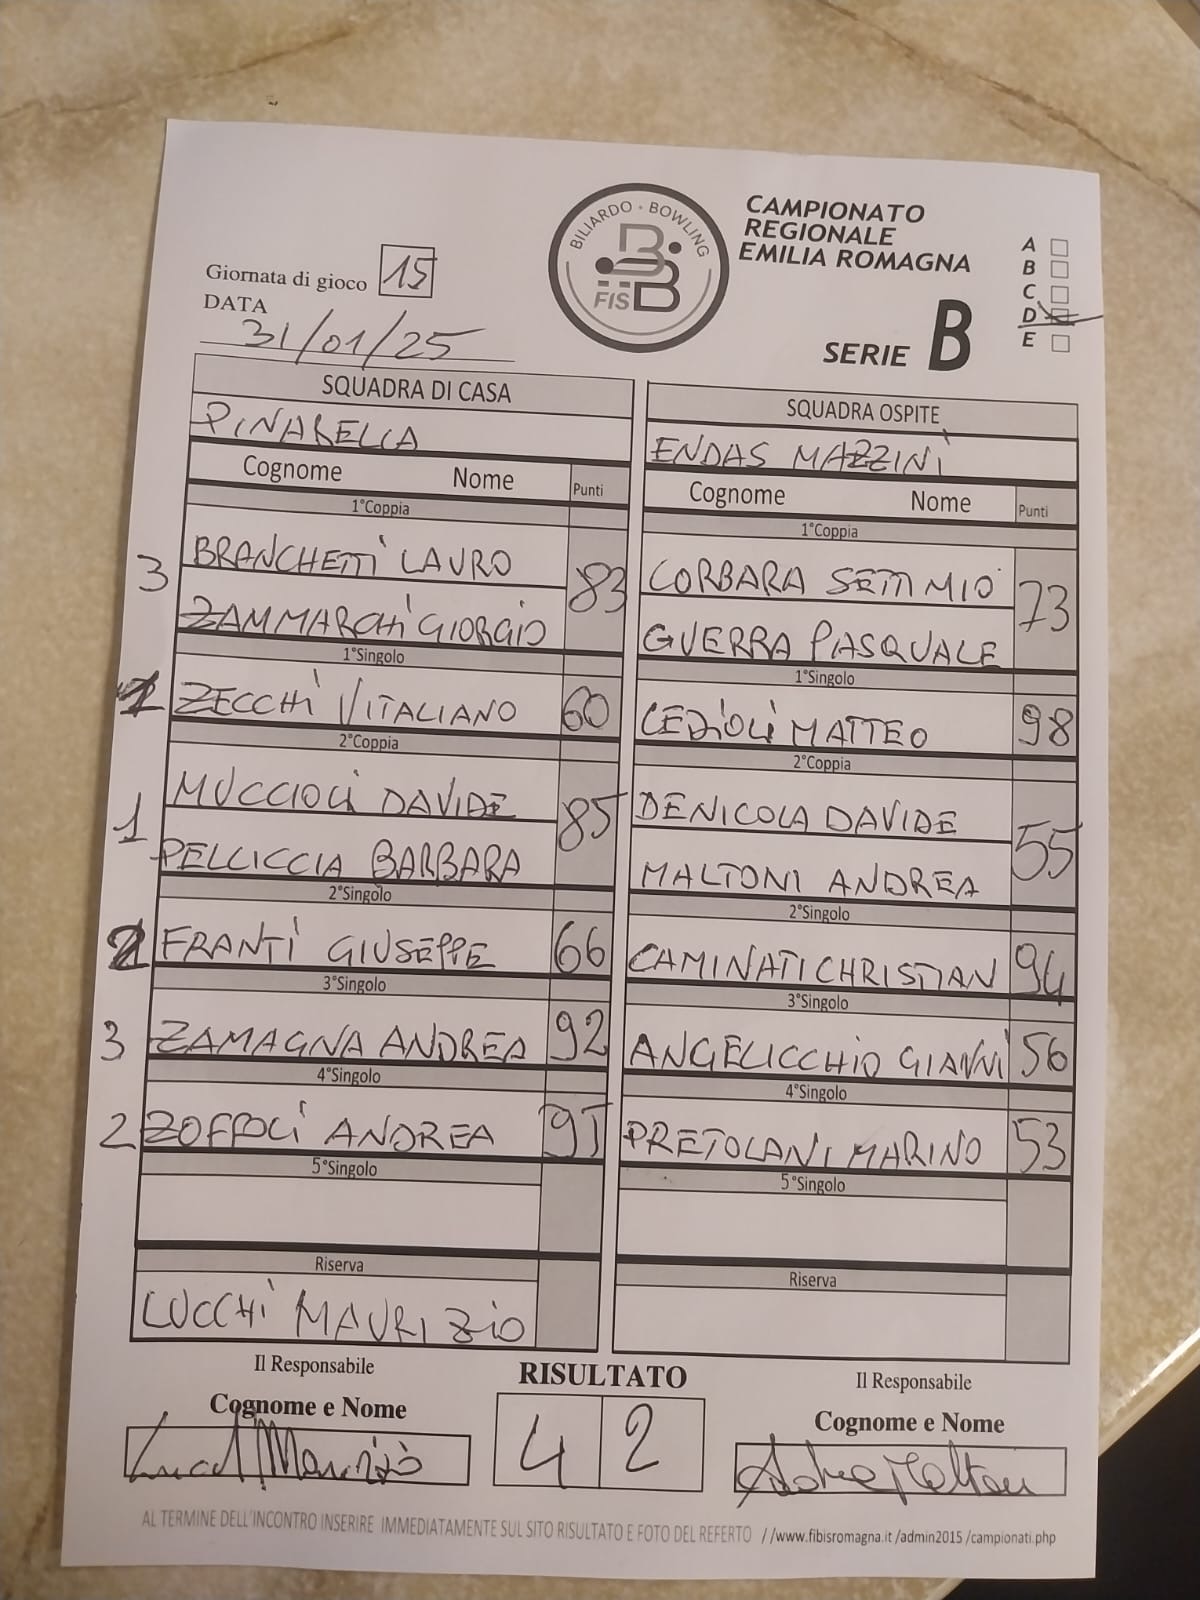 BILIARDO · BOWLING
FISBB
CAMPIONATO
REGIONALE
EMILIA ROMAGNA
SERIE B
A
B
C
D
E
Giornata di gioco 15
DATA
31/01/25
SQUADRA DI CASA
PINARELLA
Cognome Nome Punti
1°Coppia
3 BRANCHETTI LAURO 83
ZAMMARCHI GIORGIO
1°Singolo
ZECCHI VITALIANO 60
2°Coppia
1 MUCCIOLI DAVIDE 85
PELLICCIA BARBARA
2°Singolo
2 FRANTI GIUSEPPE 66
3°Singolo
3 ZAMAGNA ANDREA 92
4°Singolo
2 ZOFFOLI ANDREA 95
5°Singolo
Riserva
LUCCHI MAURIZIO
SQUADRA OSPITE
ENDAS MAZZINI
Cognome Nome Punti
1°Coppia
CORBARA SETTIMIO 73
GUERRA PASQUALE
1°Singolo
CEDIOLI MATTEO 98
2°Coppia
DENICOLA DAVIDE 55
MALTONI ANDREA
2°Singolo
CAMINATI CHRISTIAN 94
3°Singolo
ANGELICCHIO GIANNI 56
4°Singolo
PRETOLANI MARINO 53
5°Singolo
Riserva
Il Responsabile
Cognome e Nome
RISULTATO
4 2
Il Responsabile
Cognome e Nome
Andrea Maltoni
AL TERMINE DELL'INCONTRO INSERIRE IMMEDIATAMENTE SUL SITO RISULTATO E FOTO DEL REFERTO //www.fibisromagna.it /admin2015 /campionati.php